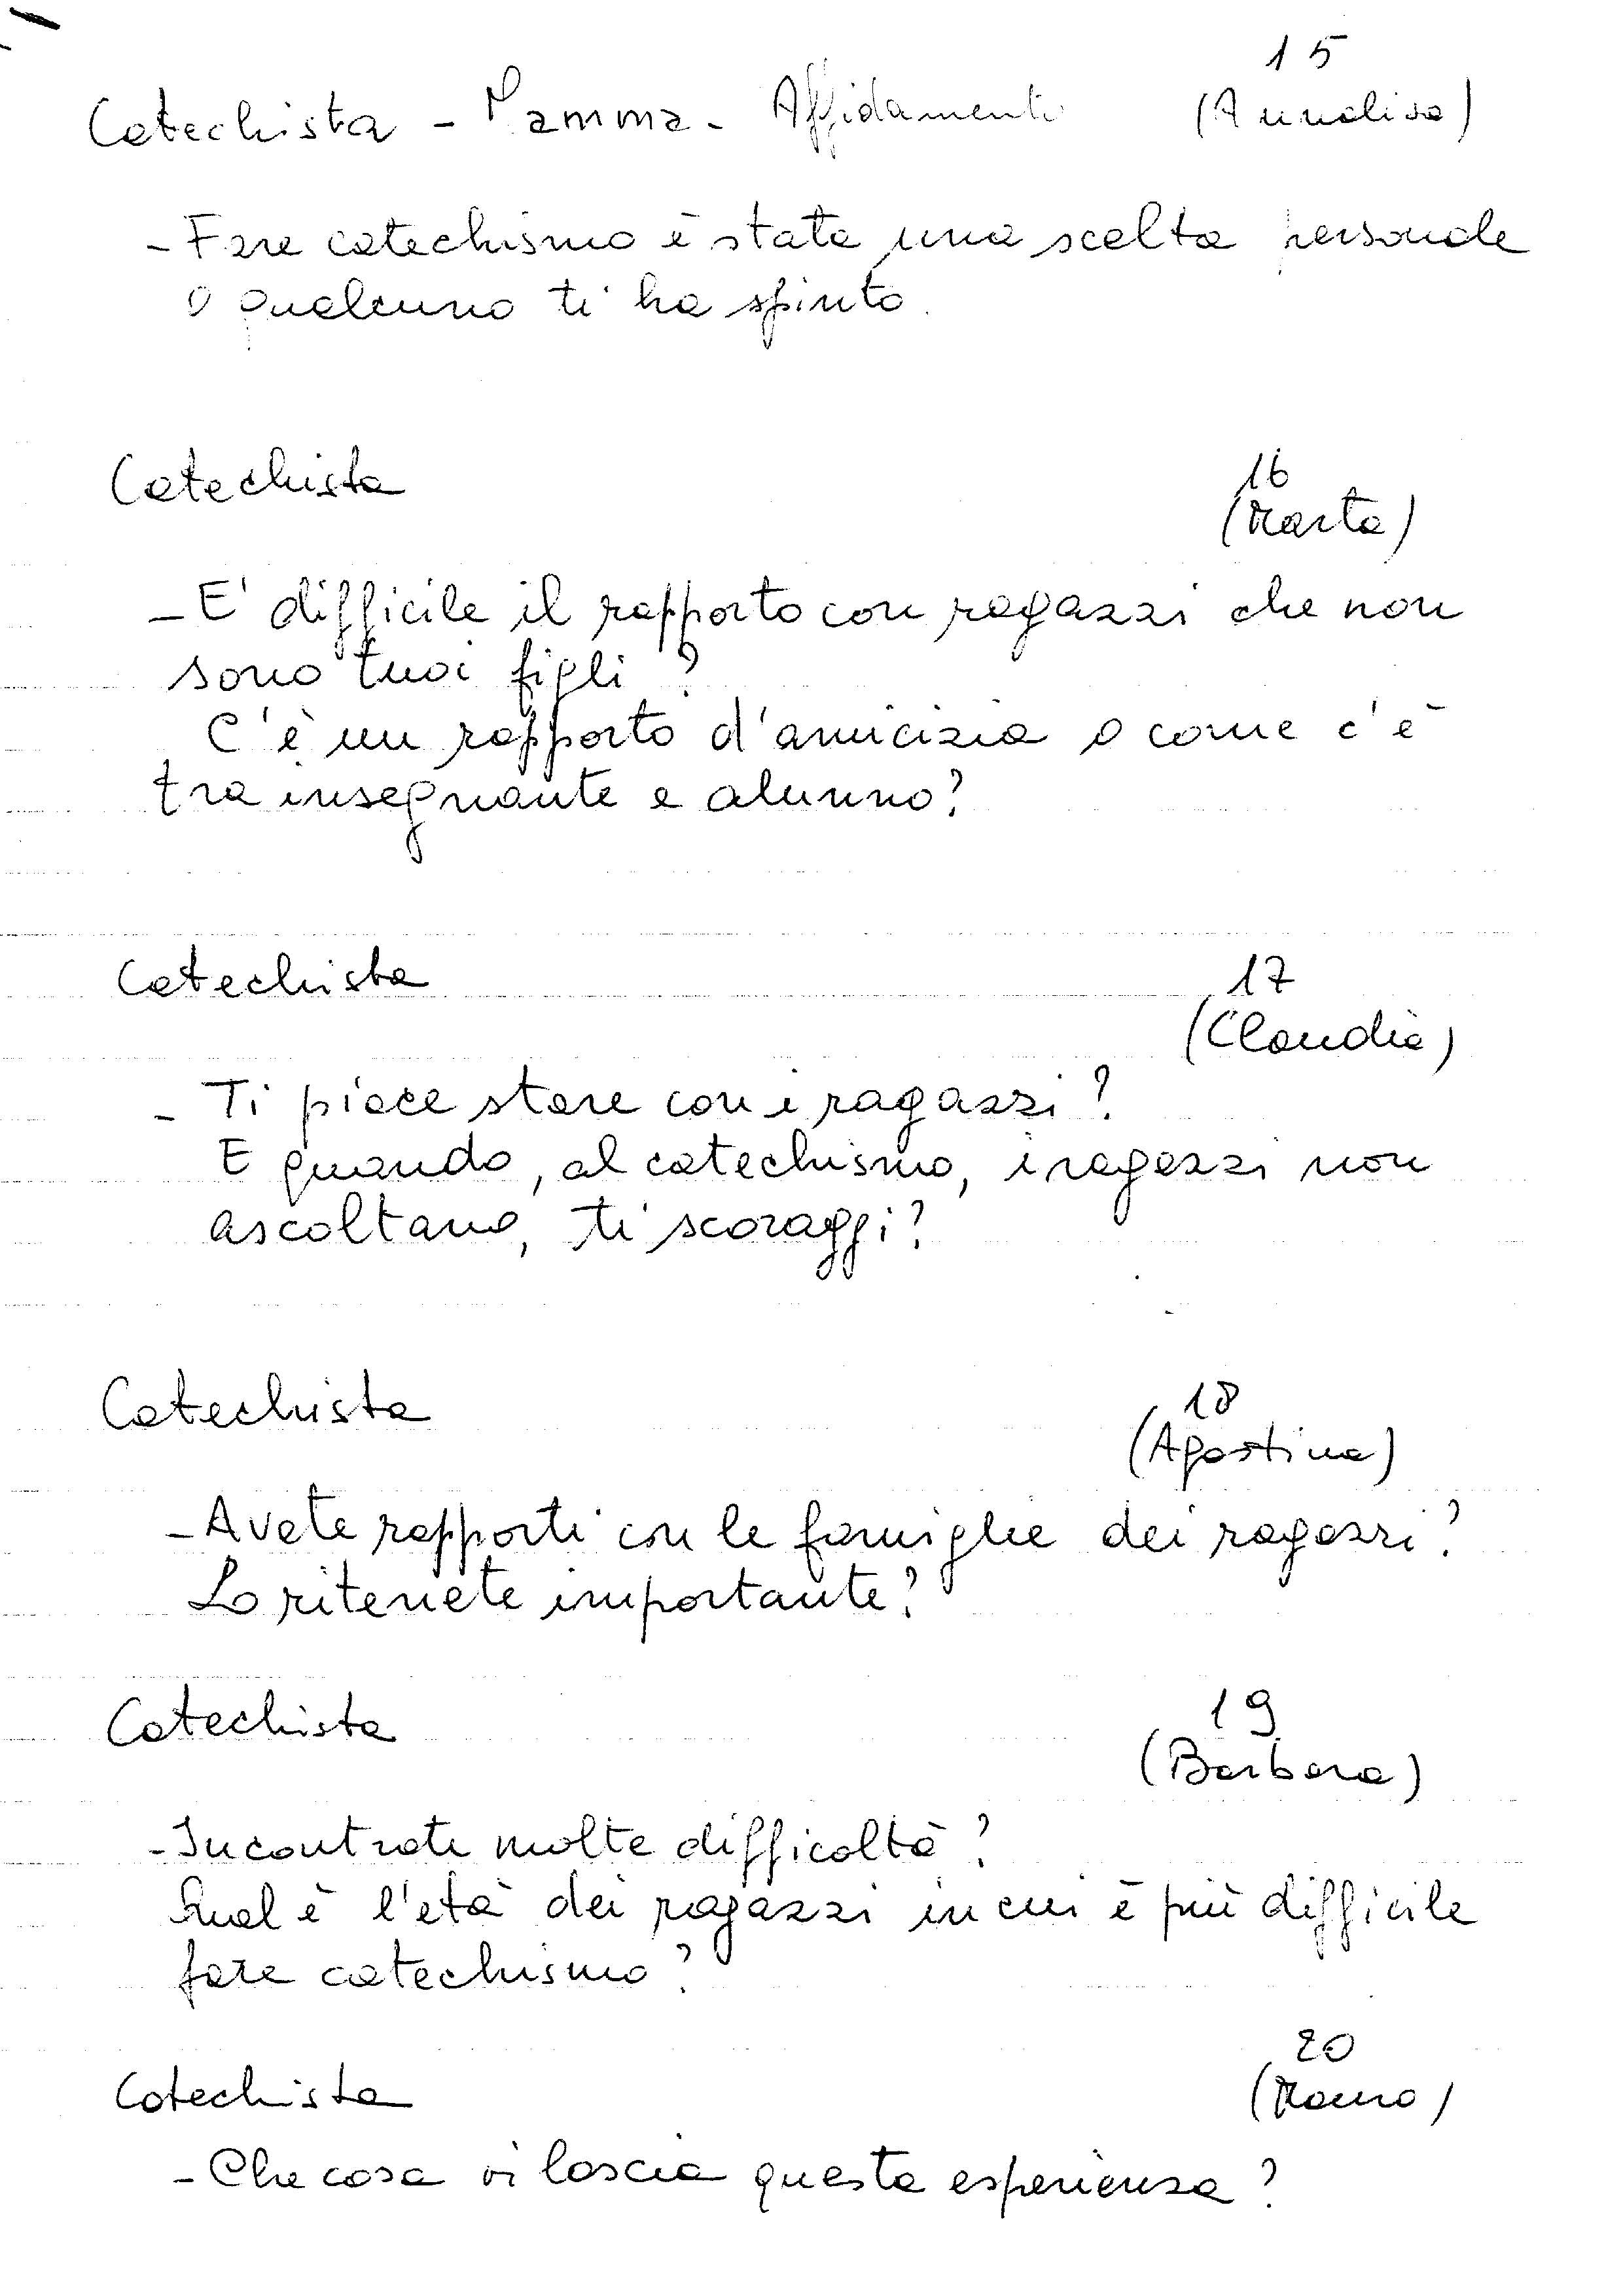 15
Catechista - Mamma - Affidamenti (Annalisa)
- Fare catechismo è stata una scelta personale
o qualcuno ti ha spinto.
Catechista 16
(Marta)
- E' difficile il rapporto con ragazzi che non
sono tuoi figli?
C'è un rapporto d'amicizia o come c'è
tra insegnante e alunno?
Catechista 17
(Claudia)
- Ti piace stare con i ragazzi?
E quando, al catechismo, i ragazzi non
ascoltano, ti scoraggi?
Catechista 18
(Agostina)
- Avete rapporti con le famiglie dei ragazzi?
Lo ritenete importante?
Catechista 19
(Barbara)
- Incontrate molte difficoltà?
Qual è l'età dei ragazzi in cui è più difficile
fare catechismo?
20
Catechista
- Che cosa vi lascia questa esperienza?